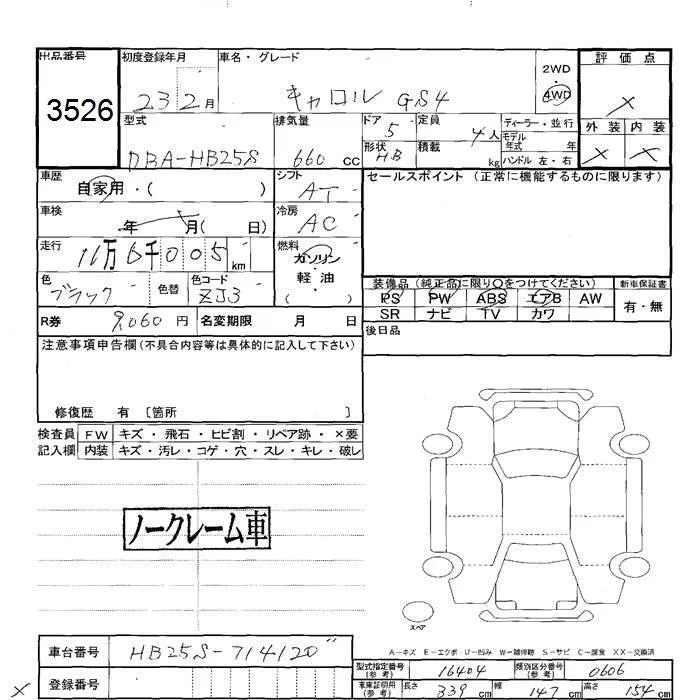 出品番号 初度登録年月 車名・グレード 2WD 評価点
3526 23 2月 キャロル GS4 4WD ×
型式 排気量 ドア 定員 ディーラー・並行 外装 内装
DBA-HB25S 660 cc 5 4人 モデル年式 年 × ×
形状 HB 積載 kg ハンドル 左・右
車歴 自家用・( ) シフト AT セールスポイント (正常に機能するものに限ります)
車検 年 月( 日) 冷房 AC
走行 11万6千005km 燃料 ガソリン
軽・油
( )
色 ブラック 色替 色コード ZJ3
装備品 (純正品に限り○をつけてください) 新車保証書
PS PW ABS エアB AW 有・無
SR ナビ TV カワ
R券 9,060円 名変期限 月 日
後日品
注意事項申告欄(不具合内容等は具体的に記入して下さい)
修復歴 有 〔箇所 〕
検査員 FW キズ・飛石・ヒビ割・リペア跡・×要
記入欄 内装 キズ・汚レ・コゲ・穴・スレ・キレ・破レ
ノークレーム車
スペア
A-キズ E-エクボ U-凹み W-補修跡 S-サビ C-腐食 XX-交換済
車台番号 HB25S-714120"
型式指定番号(参考) 16404 類別区分番号(参考) 0606
× 登録番号
車庫証明用(参考) 長さ 339cm 幅 147cm 高さ 154cm